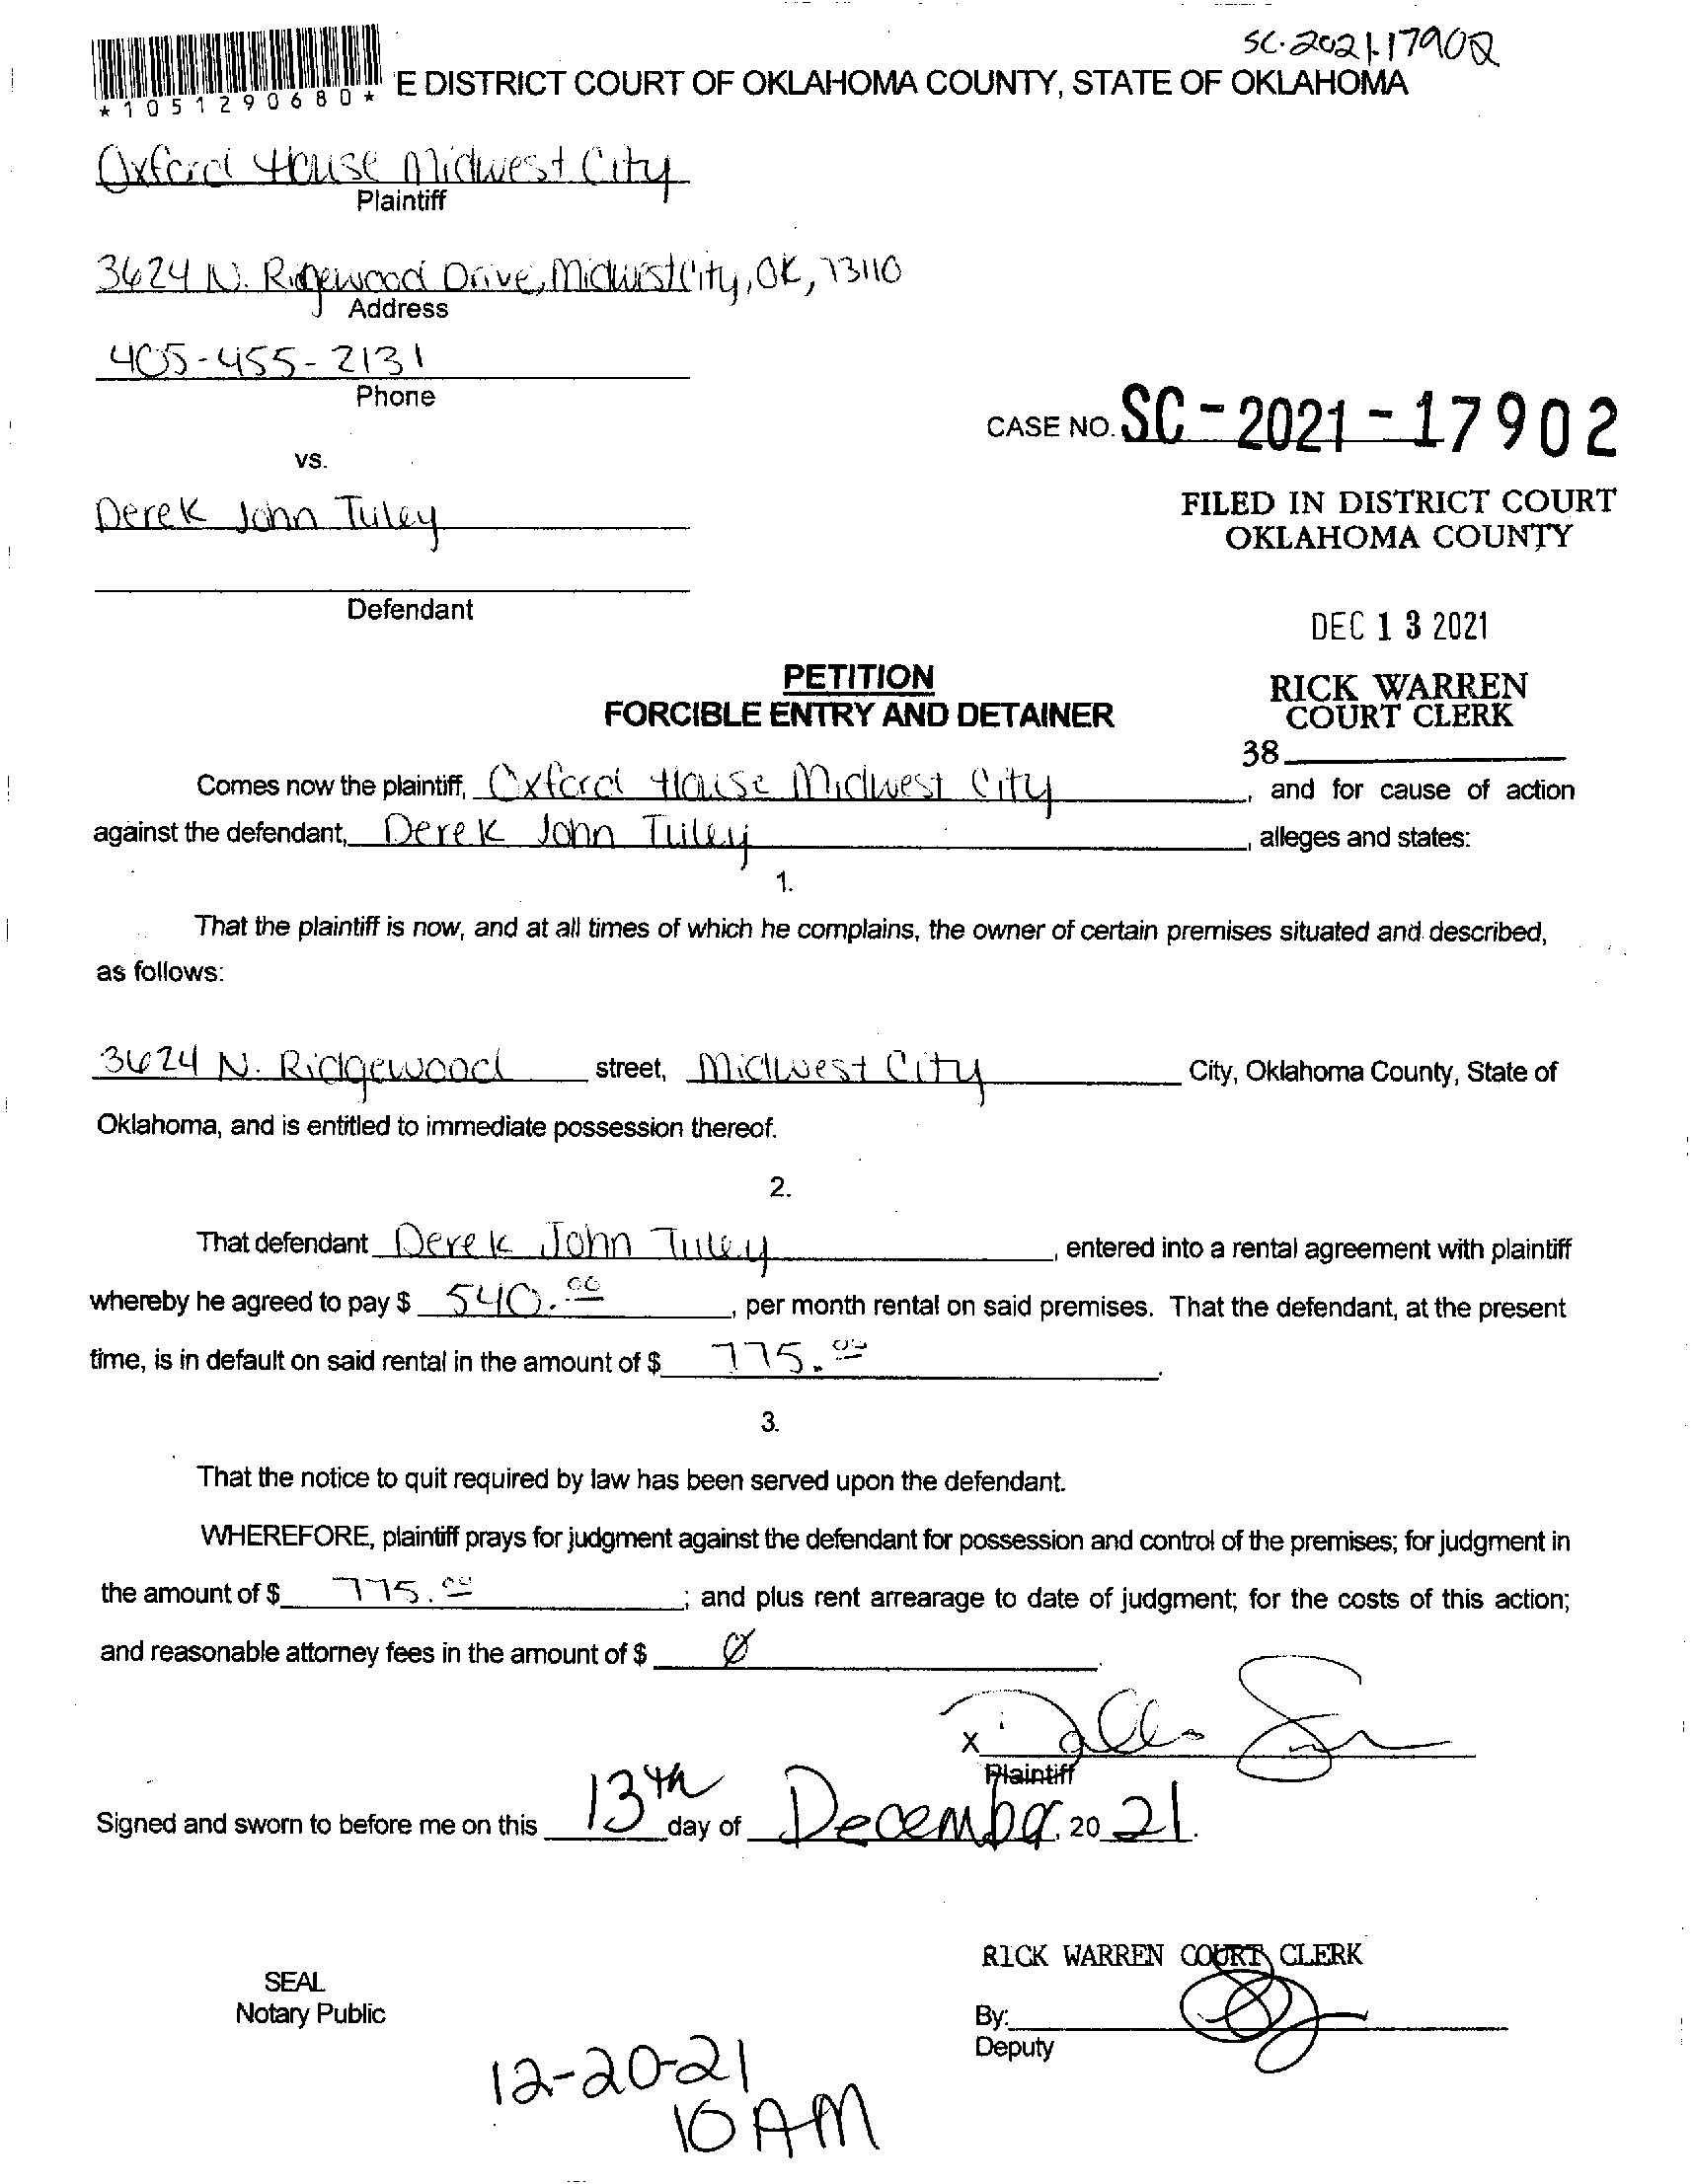 SC-2021-17902
*1051290680*
E DISTRICT COURT OF OKLAHOMA COUNTY, STATE OF OKLAHOMA
Oxford House Midwest City
Plaintiff
3624 N. Ridgewood Drive, Midwest City, OK, 73110
Address
405-455-2131
Phone
CASE NO. SC-2021-17902
vs.
Derek John Tuley
FILED IN DISTRICT COURT
OKLAHOMA COUNTY
Defendant
DEC 13 2021
PETITION
FORCIBLE ENTRY AND DETAINER
RICK WARREN
COURT CLERK
38
Comes now the plaintiff, Oxford House Midwest City, and for cause of action
against the defendant, Derek John Tuley, alleges and states:
1.
That the plaintiff is now, and at all times of which he complains, the owner of certain premises situated and described,
as follows:
3624 N. Ridgewood street, Midwest City City, Oklahoma County, State of
Oklahoma, and is entitled to immediate possession thereof.
2.
That defendant Derek John Tuley, entered into a rental agreement with plaintiff
whereby he agreed to pay $ 540.00, per month rental on said premises. That the defendant, at the present
time, is in default on said rental in the amount of $ 775.00.
3.
That the notice to quit required by law has been served upon the defendant.
WHEREFORE, plaintiff prays for judgment against the defendant for possession and control of the premises; for judgment in
the amount of $ 775.00; and plus rent arrearage to date of judgment; for the costs of this action;
and reasonable attorney fees in the amount of $ Ø.
X
Plaintiff
Signed and sworn to before me on this 13th day of December, 20 21.
RICK WARREN COURT CLERK
SEAL
Notary Public
By:
Deputy
12-20-21
10 AM